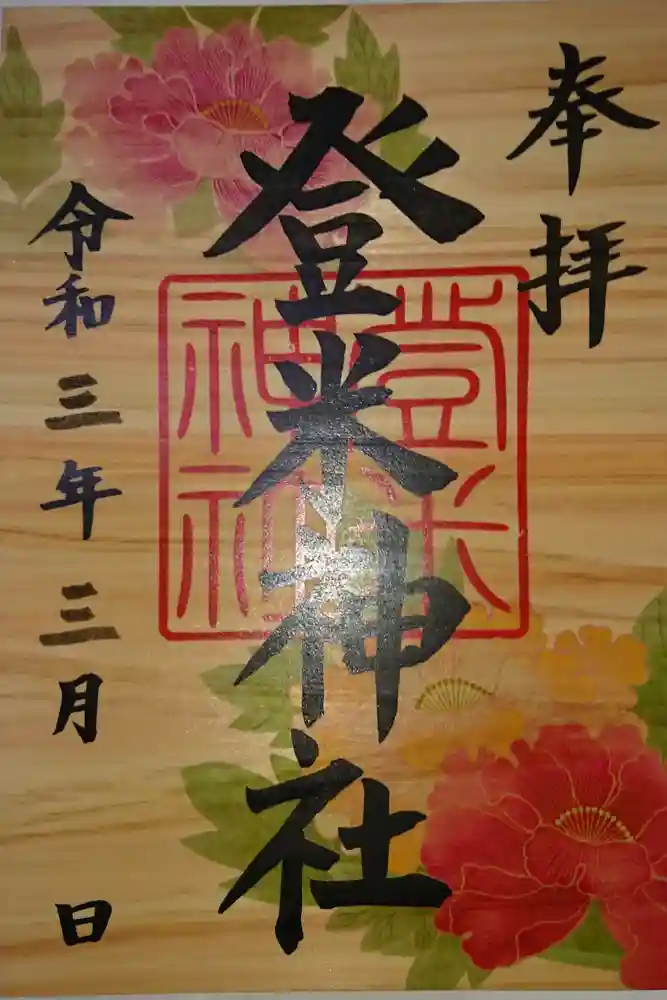 奉拝
登米神社
登米
神社
令和三年三月 日